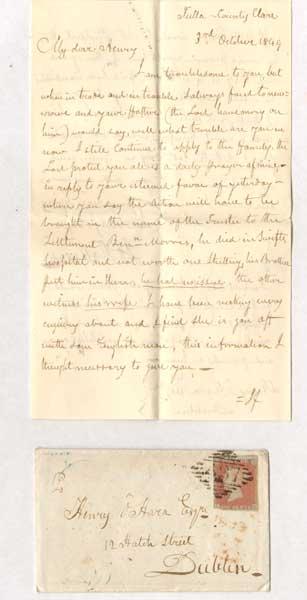 Tulla - County Clare
3rd October 1849
My dear Henry
I am troublesome to you, but
when in trade and in trouble I always find to new-
and your Father (the Lord have mercy on
him) would say, well what trouble are you in
now I still continue to apply to the family, the
Lord protect you all is a daily prayer of mine,-
In reply to your esteemed favor of yesterday -
where you say the action will have to be
brought in the name of the Trustee to the
Settlement Benn. Morris, he died in Swifts
Hospital and not worth one Shilling, his Brother
put him in there, he had no issue, the other
witness his wife I have been making every
enquiry about and I find she is gon off
with some English man, this information I
thought necessary to give you -
= If
Henry O'Hara Esqr
12 Hatch Street
Dublin